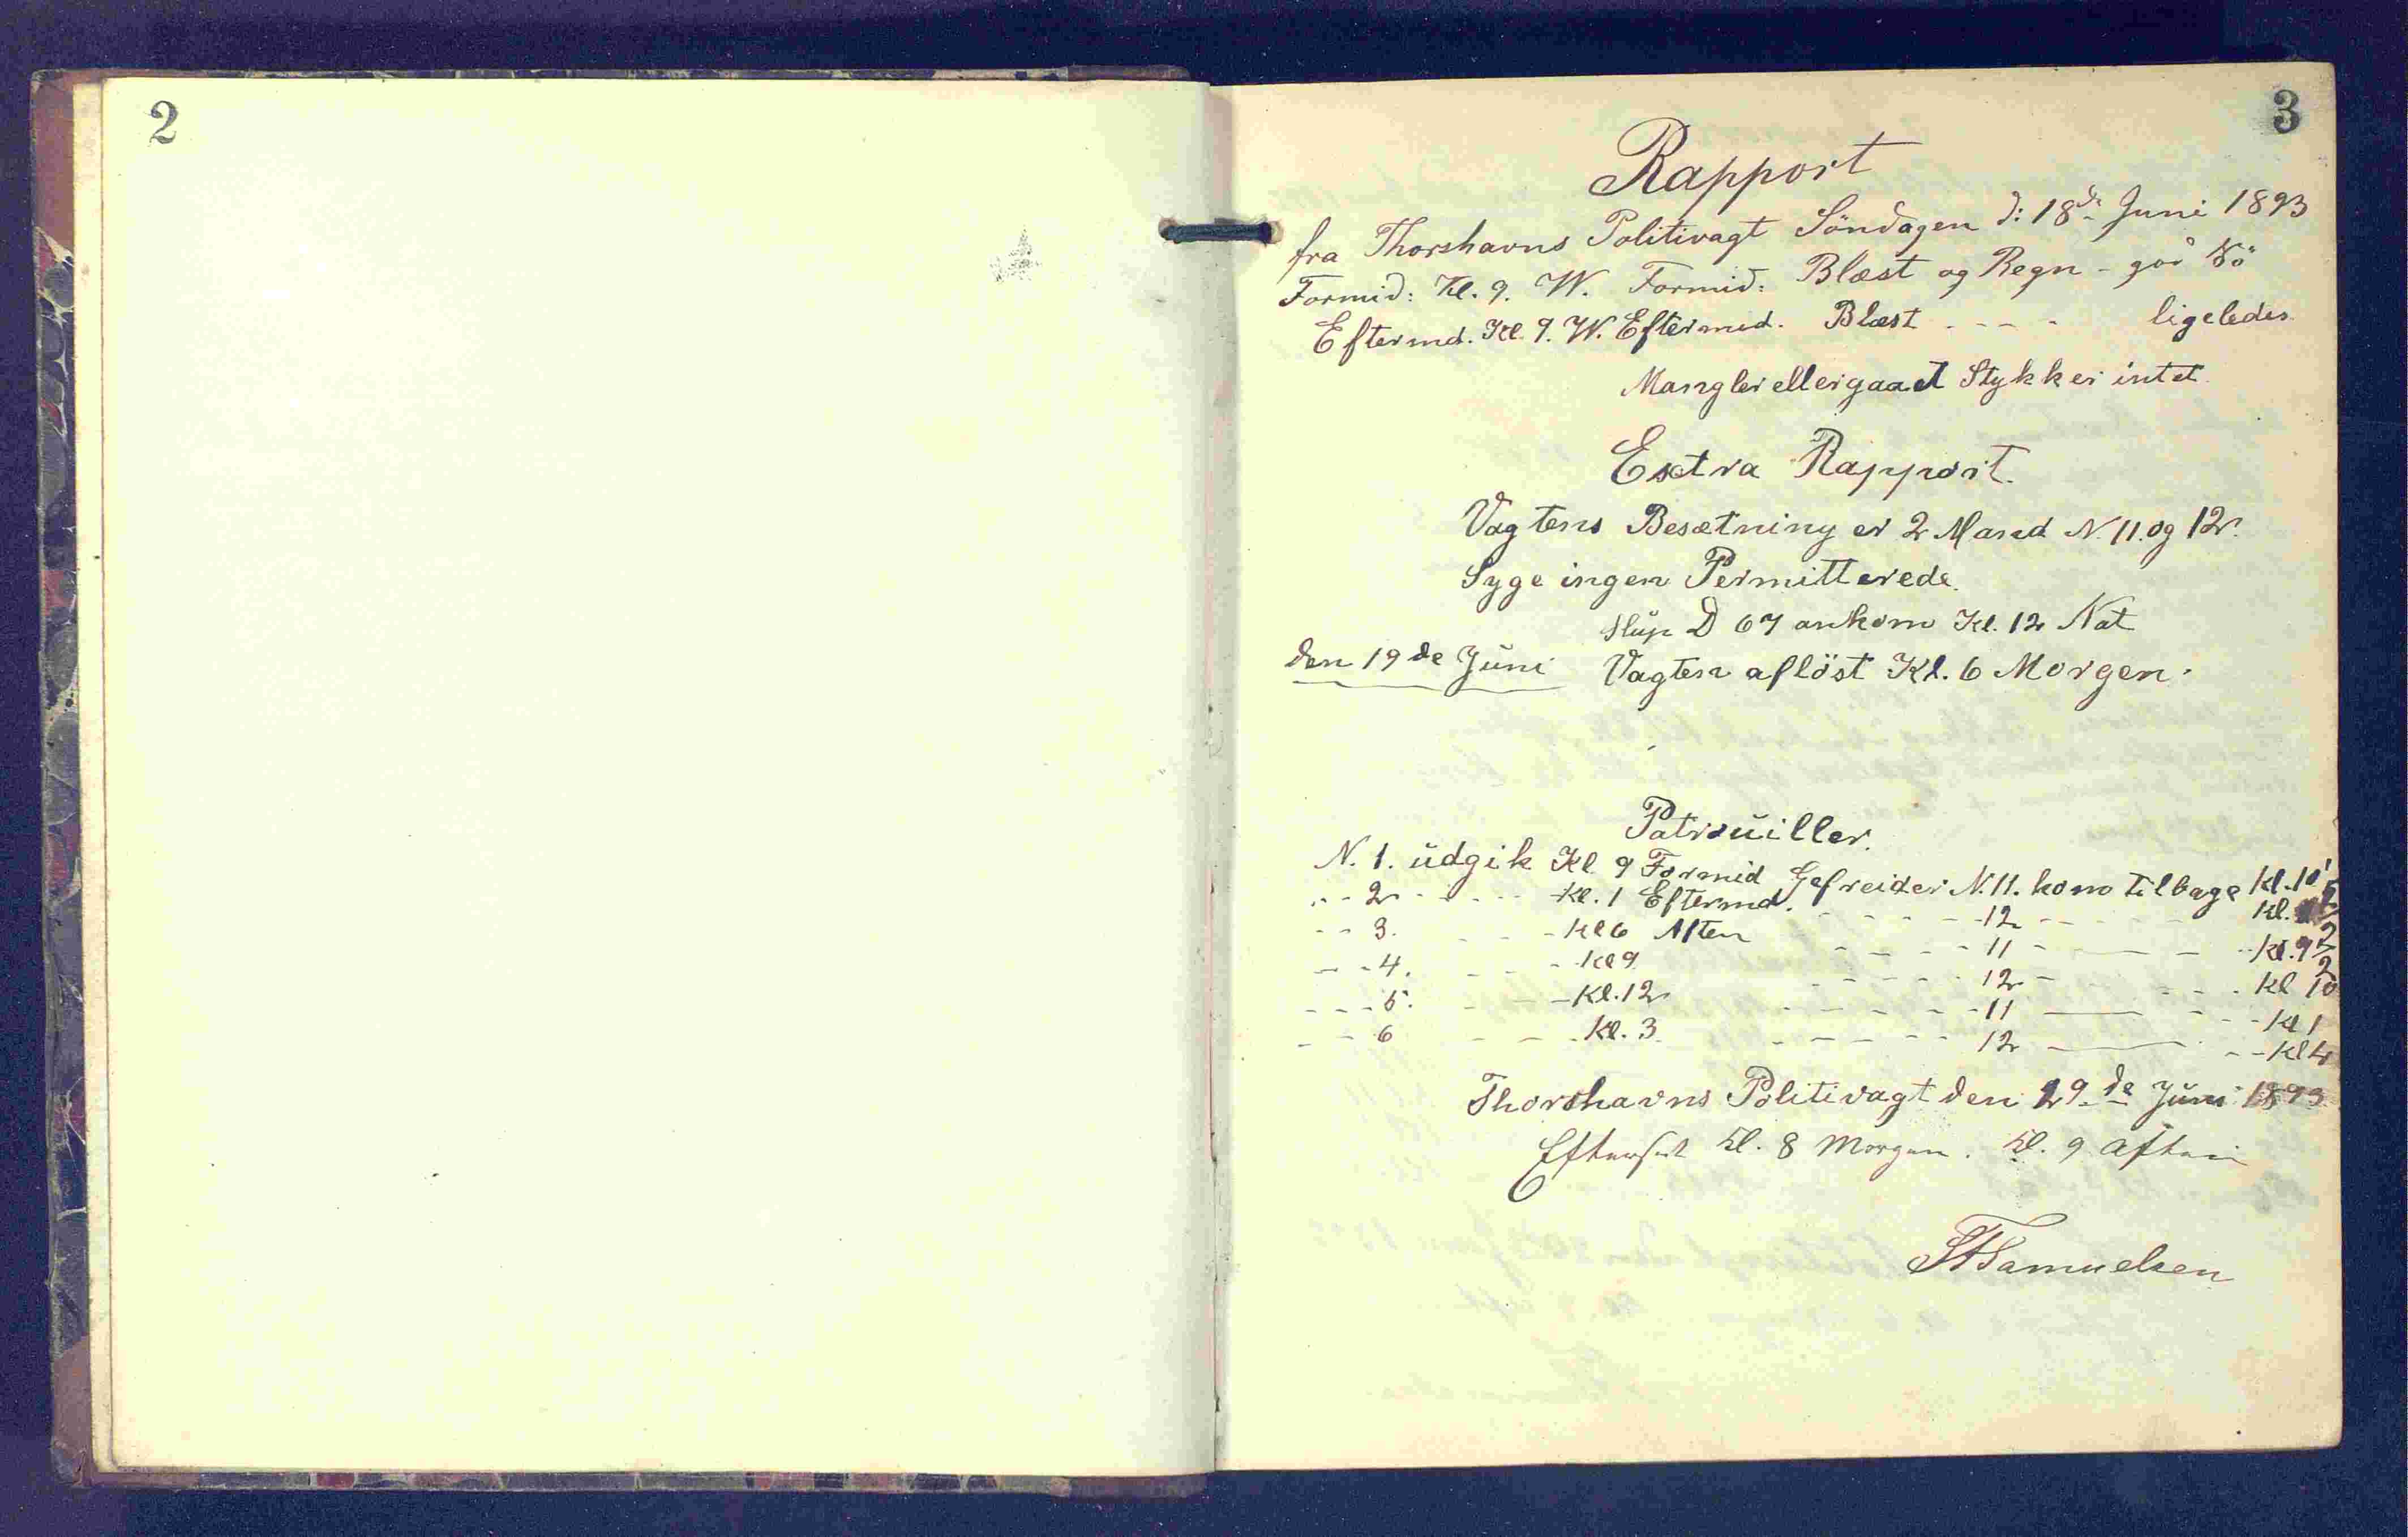 2
3
Rapport
fra Thorshavns Politivagt Söndagen d: 18de Juni 1893
Formid: Kl. 9. W. Formid: Blæst og Regn - goð
Eftermd. Kl. 9. W. Eftermed. Blæst - - - - ligeledes
Mangler ellergaaet Stykker intet.
Extra Rapport.
Vagtens Besætning er 2 Mand N. 11. og 12.
Syge ingen Permitterede.
Slup D 67 ankom Kl. 12 Nat
den 19de Juni Vagten aflöst Kl. 6 Morgen.
Patrouiller.
N. 1. udgik Kl. 9 Formid Gefreider N. 11. kom tilbage Kl. 10
- - 2 - - - - Kl. 1 Eftermd. - - - - 12 - - Kl.
- - 3. - - - Kl 6 Aften - - - 11 - - Kl. 9
- - 4. - - - Kl 9 - - - - 12 - - - - Kl 10
- - - 5. - - - Kl. 12 - - - - - 11 - - - - Kl 1
- - 6 - - - Kl. 3 - - - - - 12 - - - Kl 4
Thorshavns Politivagt den 19.de Juni 1893.
Efterset Kl. 8 Morgen. Kl. 9 Aften
Samuelsen